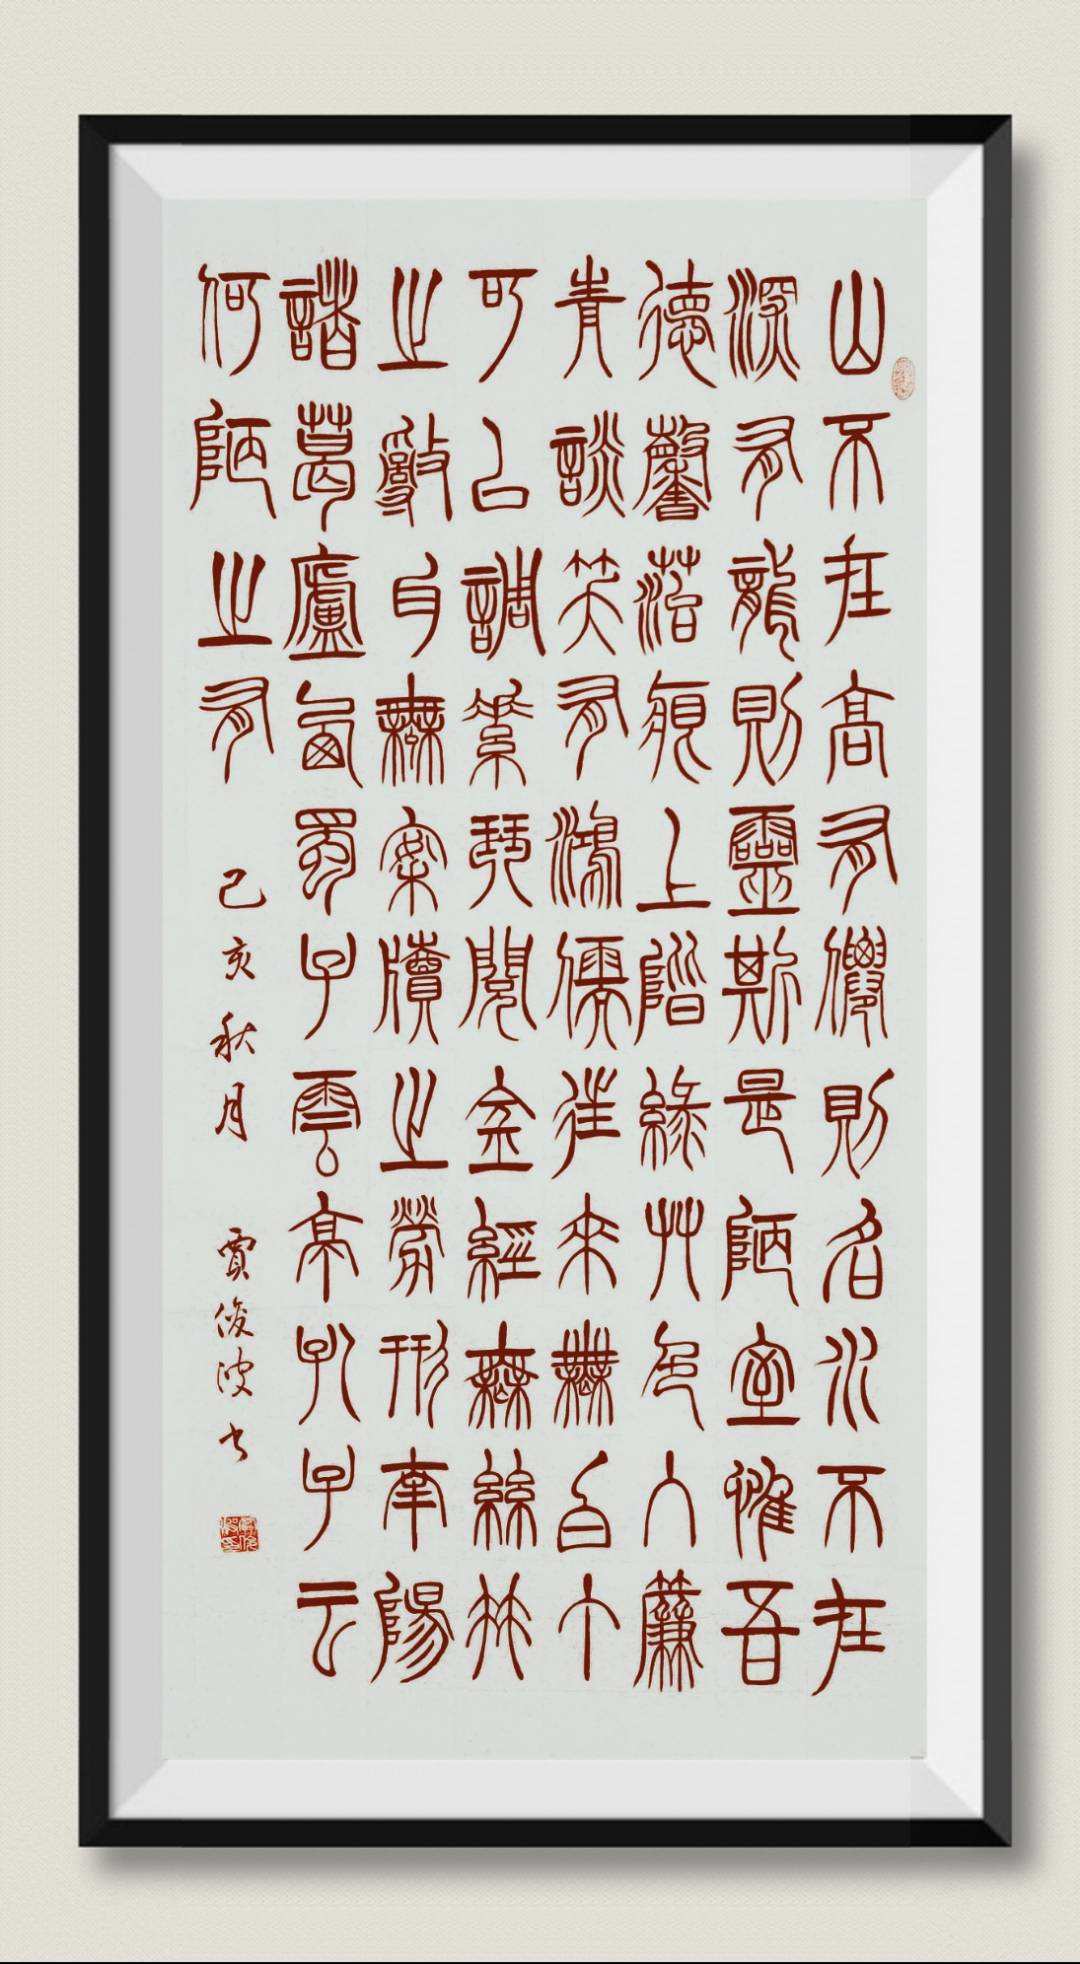 山不在高有僊則名水不在
深有龍則靈斯是陋室惟吾
德馨菭痕上階綠艸色入簾
青談笑有鴻儒往來無白丁
可以調素琴閱金經無絲竹
之亂耳無案牘之勞形南陽
諸葛廬西蜀子雲亭孔子云
何陋之有
己亥秋月 賈俊波书